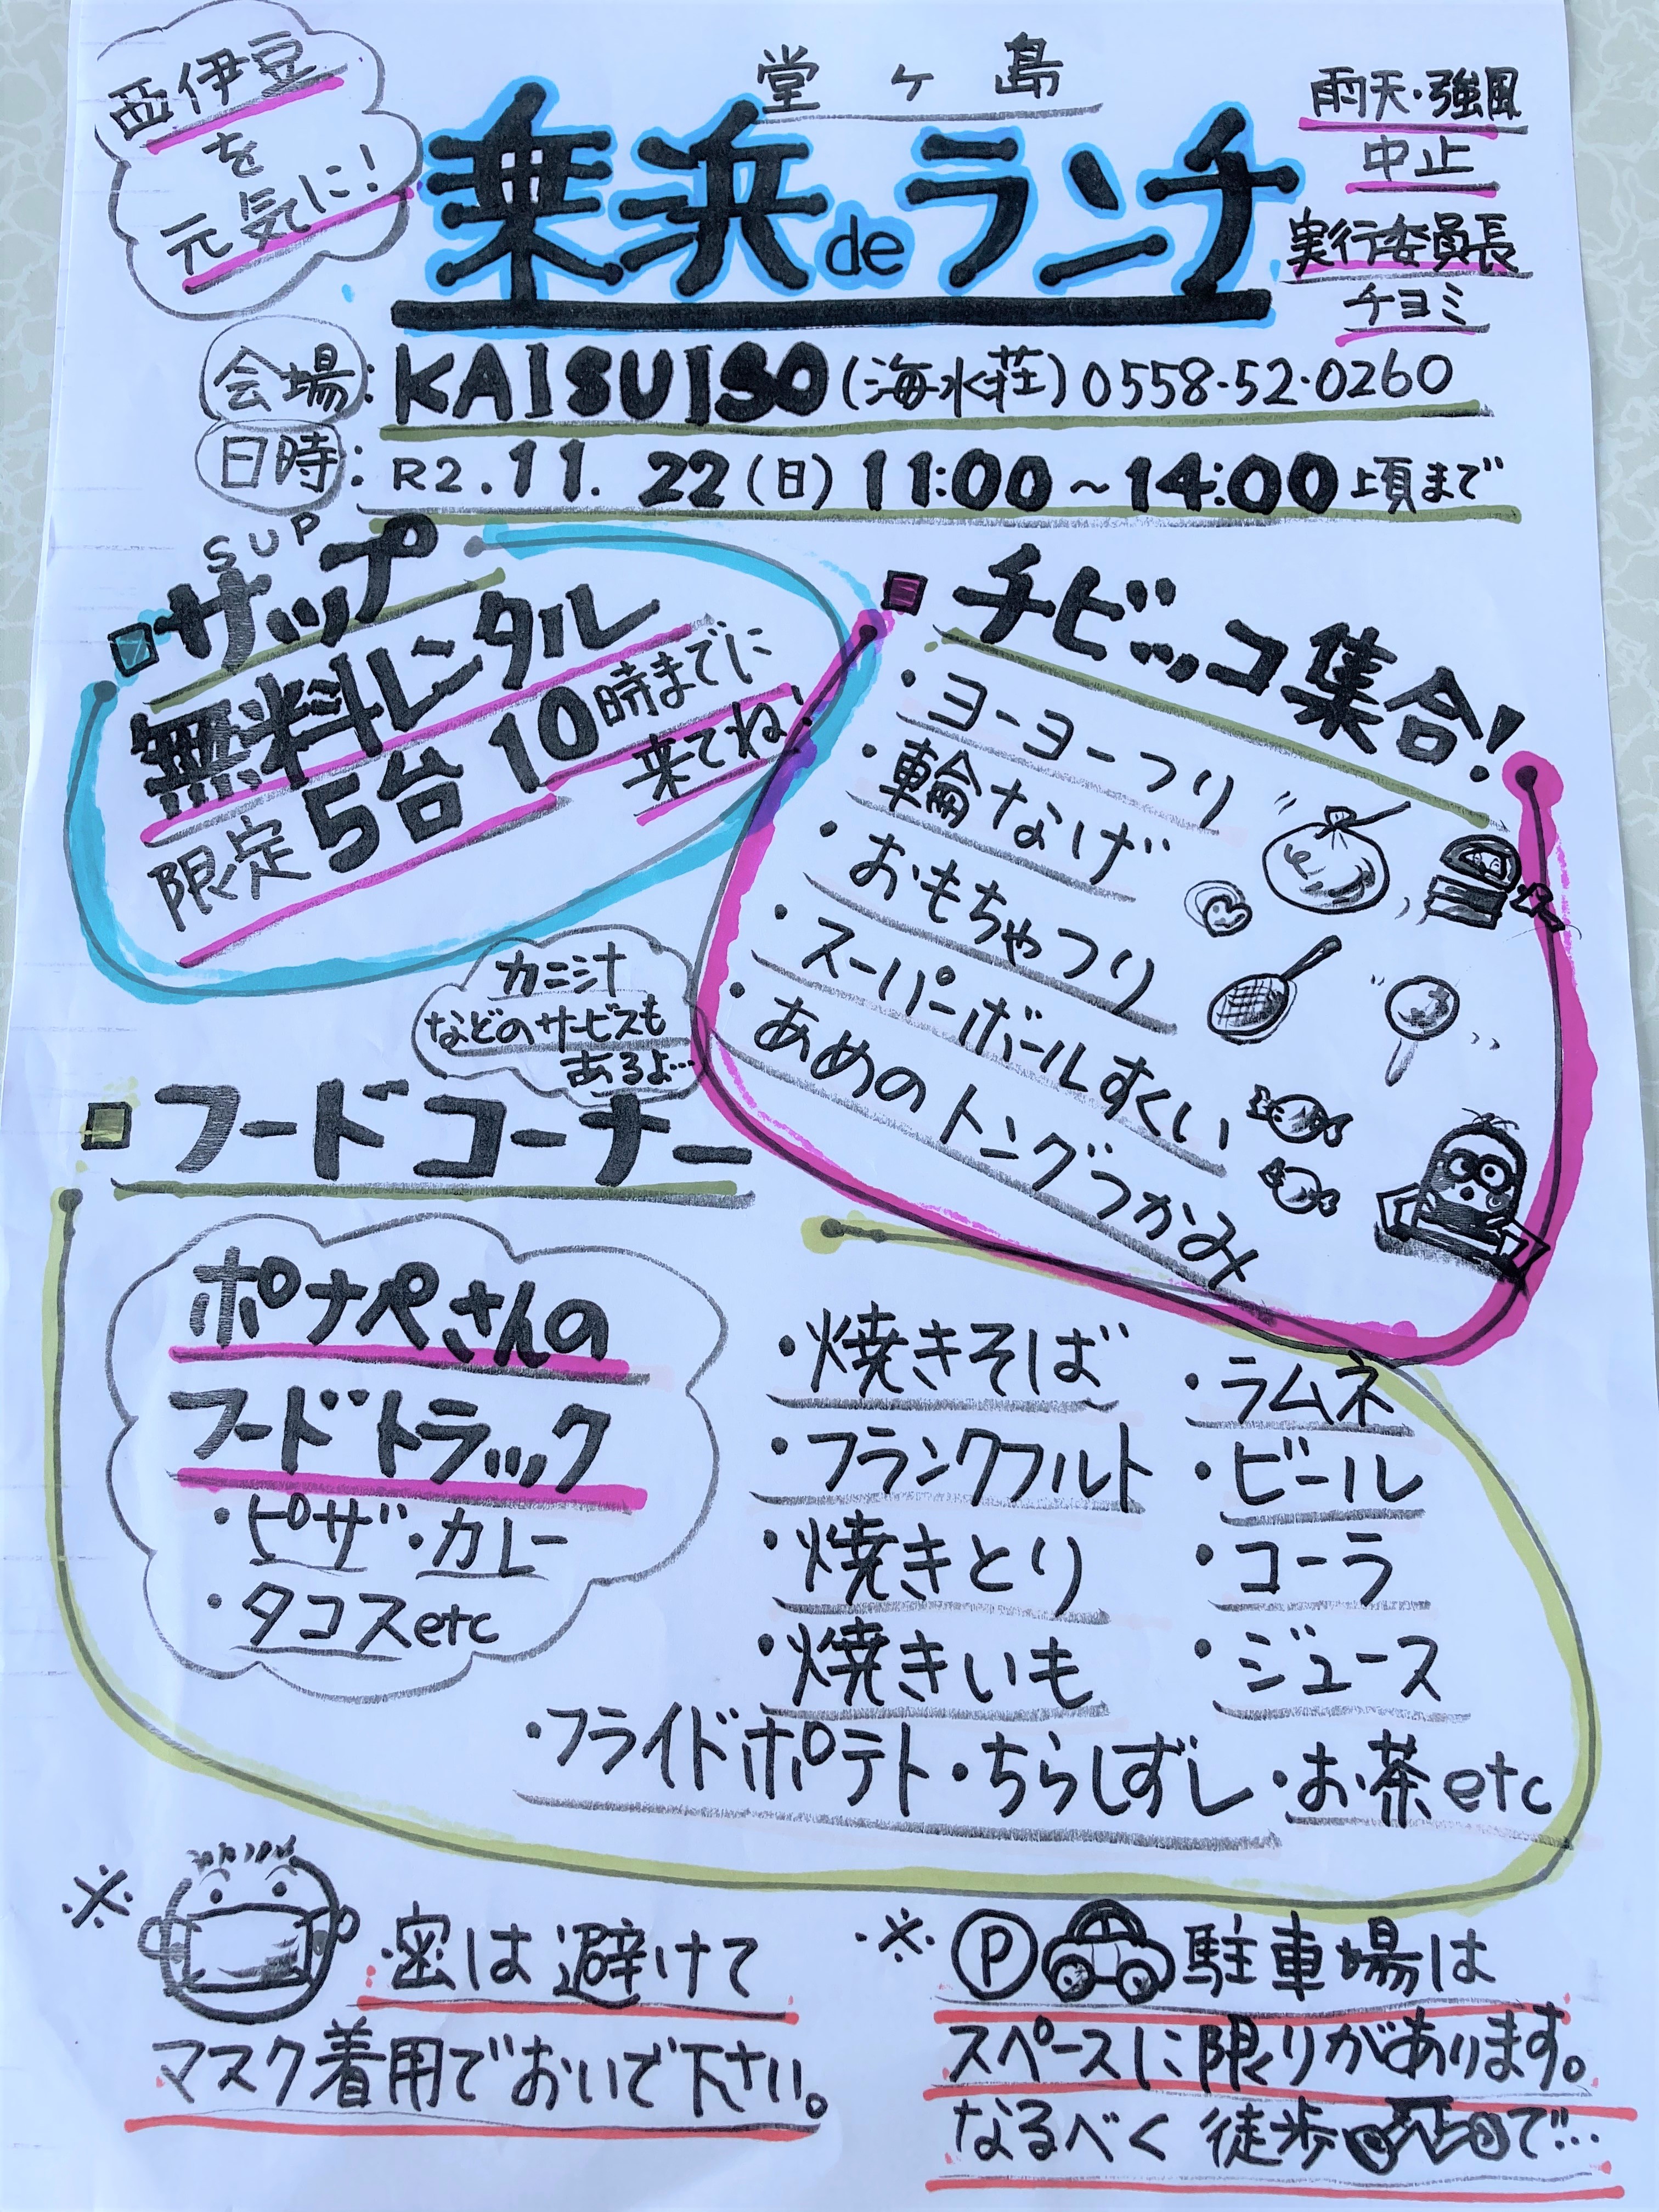 西伊豆
を
元気に!
堂ヶ島
乗浜deランチ
雨天・強風
中止
実行委員長
チヨミ
会場:KAISUISO(海水荘)0558-52-0260
日時:R2.11.22(日)11:00~14:00頃まで
SUP
サップ
無料レンタル
限定5台 10時までに
来てね!
チビッコ集合!
・ヨーヨーつり
・輪なげ
・おもちゃつり
・スーパーボールすくい
・あめのトングつかみ
カニ汁
などのサービスも
あるよ…
フードコーナー
ポナペさんの
フードトラック
・ピザ・カレー
・タコスetc
・焼きそば
・フランクフルト
・焼きとり
・焼きいも
・ラムネ
・ビール
・コーラ
・ジュース
・フライドポテト・ちらしずし・お茶etc
※ 密は避けて
マスク着用でおいで下さい。
※ P 駐車場は
スペースに限りがあります。
なるべく徒歩で…